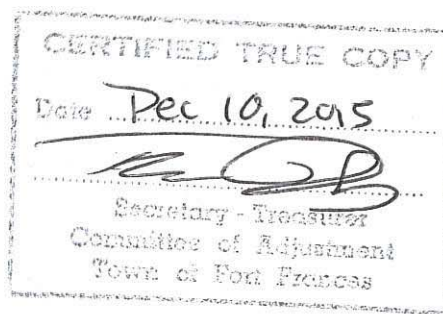 CERTIFIED TRUE COPY
Date Dec 10, 2015
Secretary - Treasurer
Committee of Adjustment
Town of Fort Frances